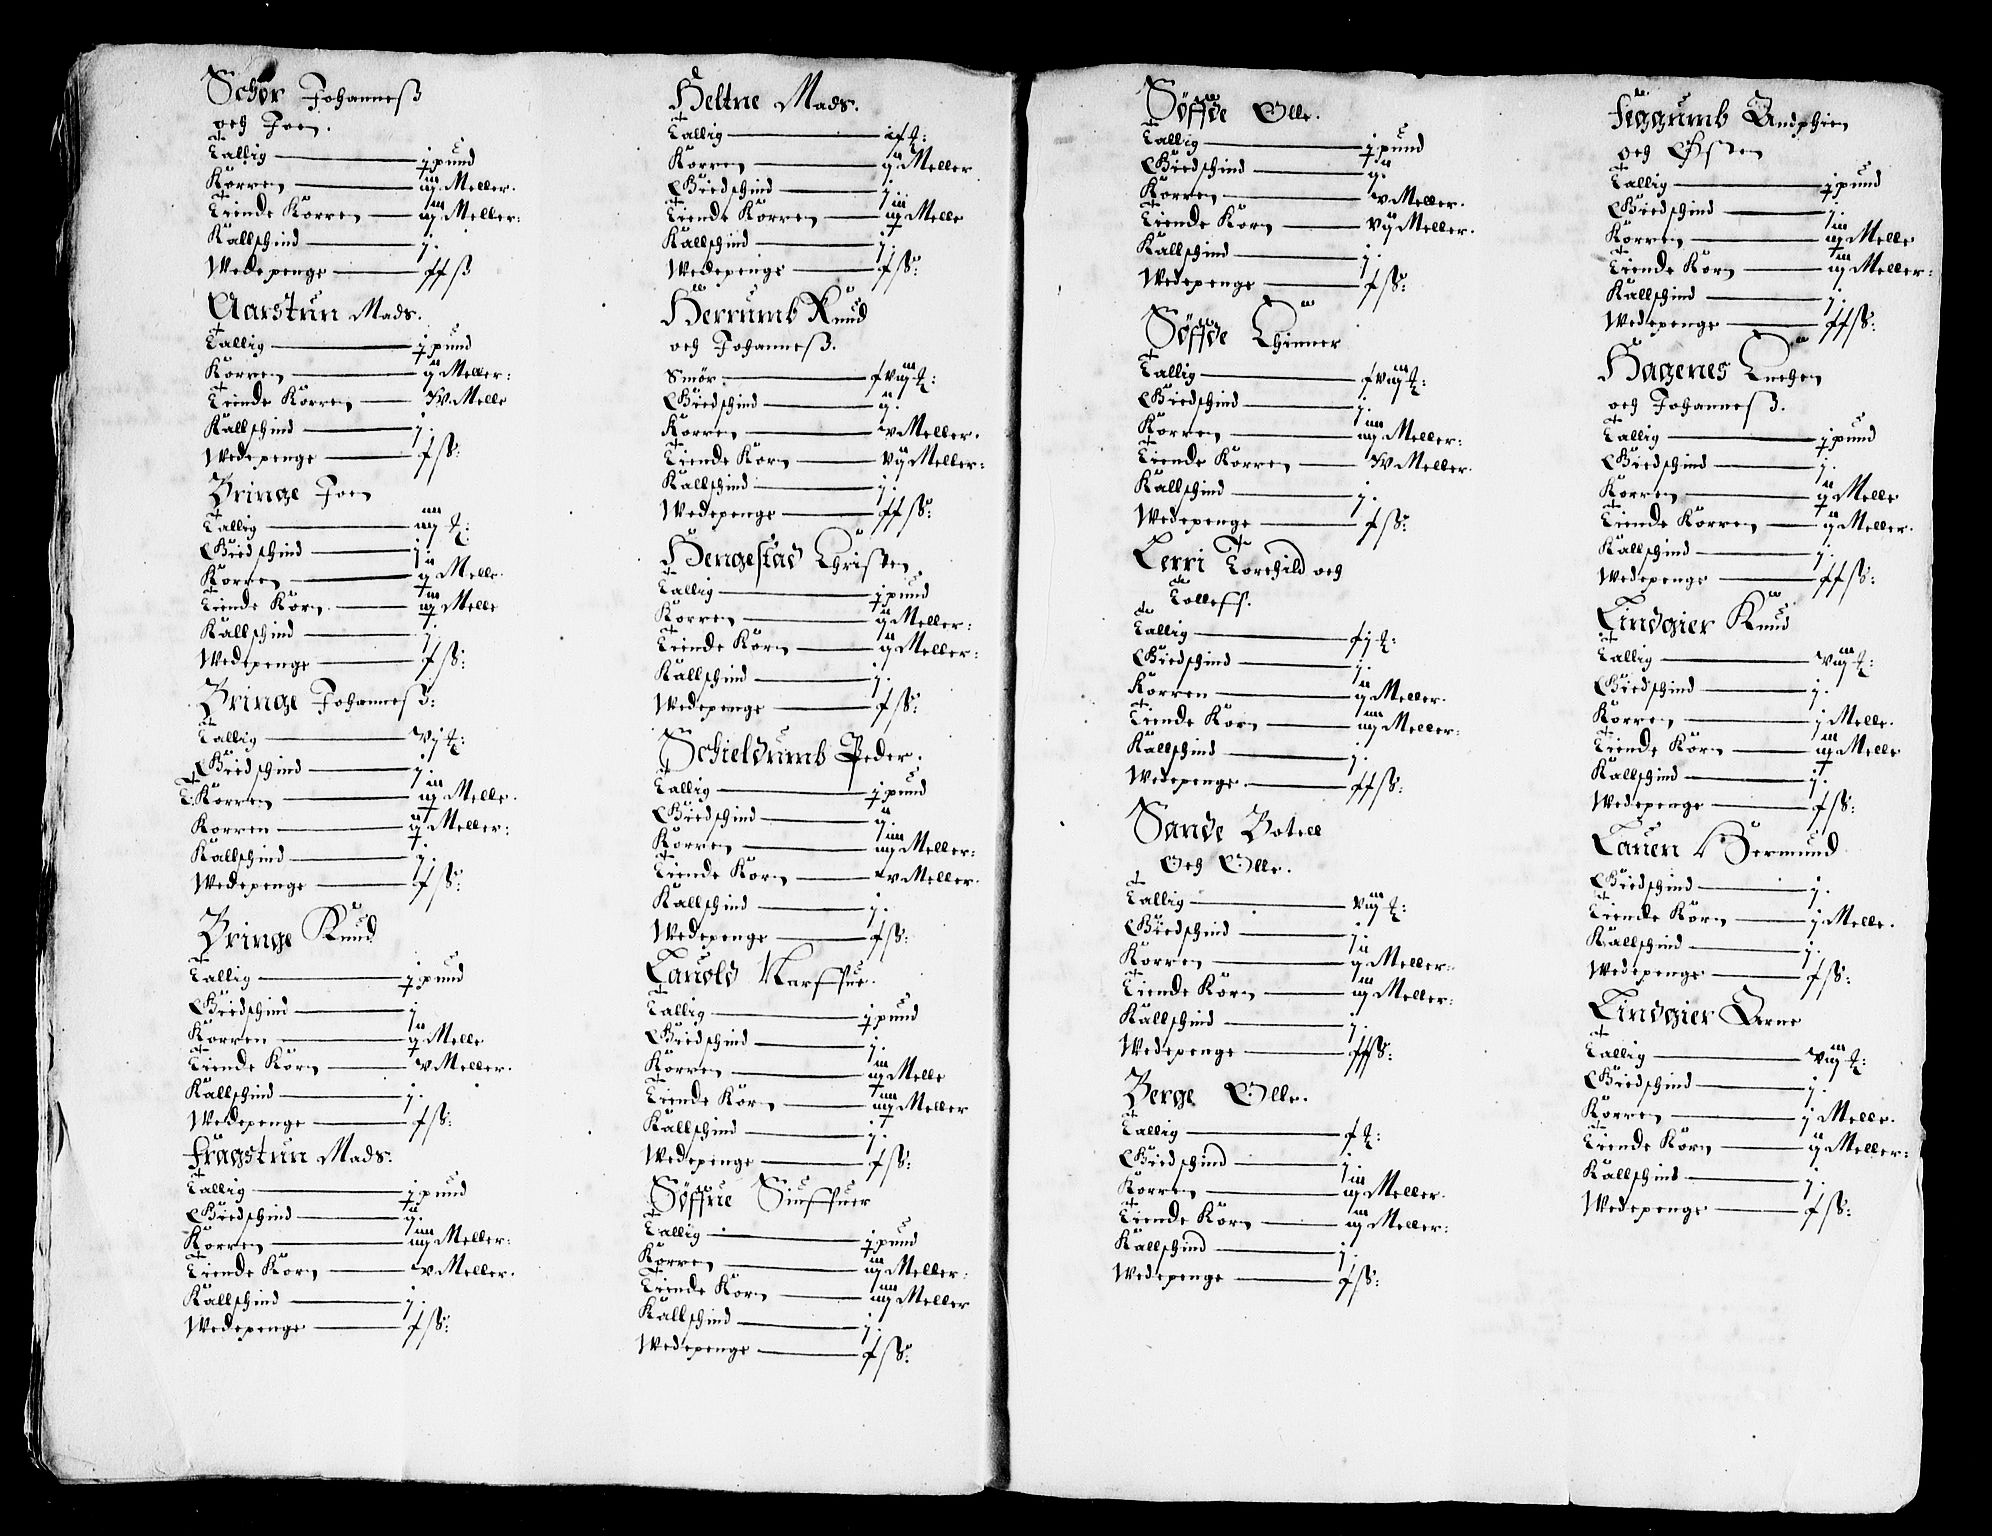 Schør Johanness
och Joen.
Tallig — j pund
Korren — iiij Meller.
Tiende Korren — iiij Meller:
Kallschind — j.
Wedepenge — ff ß
Aarstun Mads.
Tallig — j pund
Korren — ij Meller:
Tiende Korren — Meller
Kallschind — j.
Wedepenge — f ß:
Bringe Joen
Tallig — iiij
Giedschind — j.
Korren — ij Melle.
Tiende Korn — iij Melle
Kallschind — j.
Wedepenge — f ß:
Bringe Johanness:
Tallig — vj
Giedschind — j.
T: Korren — iij Melle.
Korren — ij Meller:
Kallschind — j.
Wedepenge — f ß:
Bringe Knud
Tallig — j pund
Giedschind — j
Korren — ij Melle
Tiende Korn — v Meller.
Kallschind — j.
Wedepenge — f ß:
Fragstun Mads.
Tallig — j pund
Giedschind — ij.
Korren — iiij Meller:
Tiende Korn — v Meller.
Kallschind — j.
Wedepenge — f ß:
Heltne Mads.
Tallig —
Korren — ij Meller
Giedschind — j.
Tiende Korren — iij Melle
Kallschind — j.
Wedepenge — f ß:
Herrumb Knud
och Johanness.
Smør. — f viij
Giedschind — ij.
Korren — v Meller.
Tiende Korn — vij Meller:
Kallschind — j.
Wedepenge — ff ß:
Hengestad Christen.
Tallig — j pund
Korren — ij Meller:
Tiende Korn — ij Meller:
Kallschind — j.
Wedepenge — f ß:
Schieldumb Peder.
Tallig — j pund
Giedschind — ij.
Korren — iiij Meller:
Tiende Korn — v Meller.
Kallschind — j.
Wedepenge — f ß:
Lauold Narffue.
Tallig — j pund
Giedschind — j.
Korren — iij Melle
Tiende Korn — iiij Meller
Kallschind — j.
Wedepenge — f ß:
Søffue Siuffuer
Tallig — j pund
Korren — iij Meller:
Tiende Korn — iiij Meller
Kallschind — j.
Wedepenge — f ß:
Søffde Olle.
Tallig — j pund
Giedschind — ij
Korren — v Meller.
Tiende Korn — vij Meller.
Kallschind — j.
Wedepenge — f ß:
Søffde
Tallig — f viij
Giedschind — j.
Korren — iiij Meller:
Tiende Korren — Meller.
Kallschind — j.
Wedepenge — f ß:
Lerri Torchild och
Tolleff.
Tallig — f j
Giedschind — j.
Korren — ij Meller.
Tiende Korn — iiij Meller:
Kallschind — j.
Wedepenge — ff ß:
Sande Botell
Och Olle.
Tallig — viij
Giedschind — j.
Korren — ij Meller:
Tiende Korn — iij Meller:
Kallschind — j.
Wedepenge — ff ß:
Berge Olle.
Tallig — f
Giedschind — j.
Korren — iij Meller.
Tiende Korn — iij Meller:
Kallschind — j.
Wedepenge — f ß:
Figgumb Andphien
och Østen
Tallig — j pund
Giedschind — j.
Korren — iiij Melle
Tiende Korn — iiij Meller:
Kallschind — j.
Wedepenge — ff ß:
Hagenes
och Johanness.
Tallig — j pund
Giedschind — j.
Korren — ij Melle
Tiende Korren — ij Meller.
Kallschind — j.
Wedepenge — ff ß:
Lindgier Knud
Tallig — viij
Giedschind — j.
Korren — j Melle.
Tiende Korn — iij Melle
Kallschind — j.
Wedepenge — f ß:
Lauen Germund
Giedschind — j.
Tiende Korn — j Melle.
Kallschind — j.
Wedepenge — f ß:
Lindgier Arne
Tallig — viij
Giedschind — j.
Korren — j Melle.
Tiende Korn — ij Meller:
Kallschind — j.
Wedepenge — f ß: